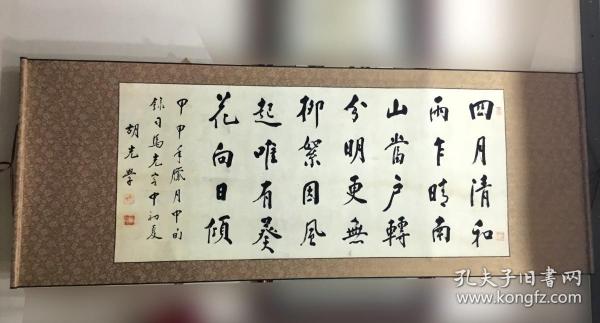 四月清和
雨乍晴南
山當户轉
分明更無
柳絮因風
起唯有葵
花向日傾
甲申年臘月中旬
錄司馬光客中初夏
胡光學
孔夫子旧书网
www.kongfz.com